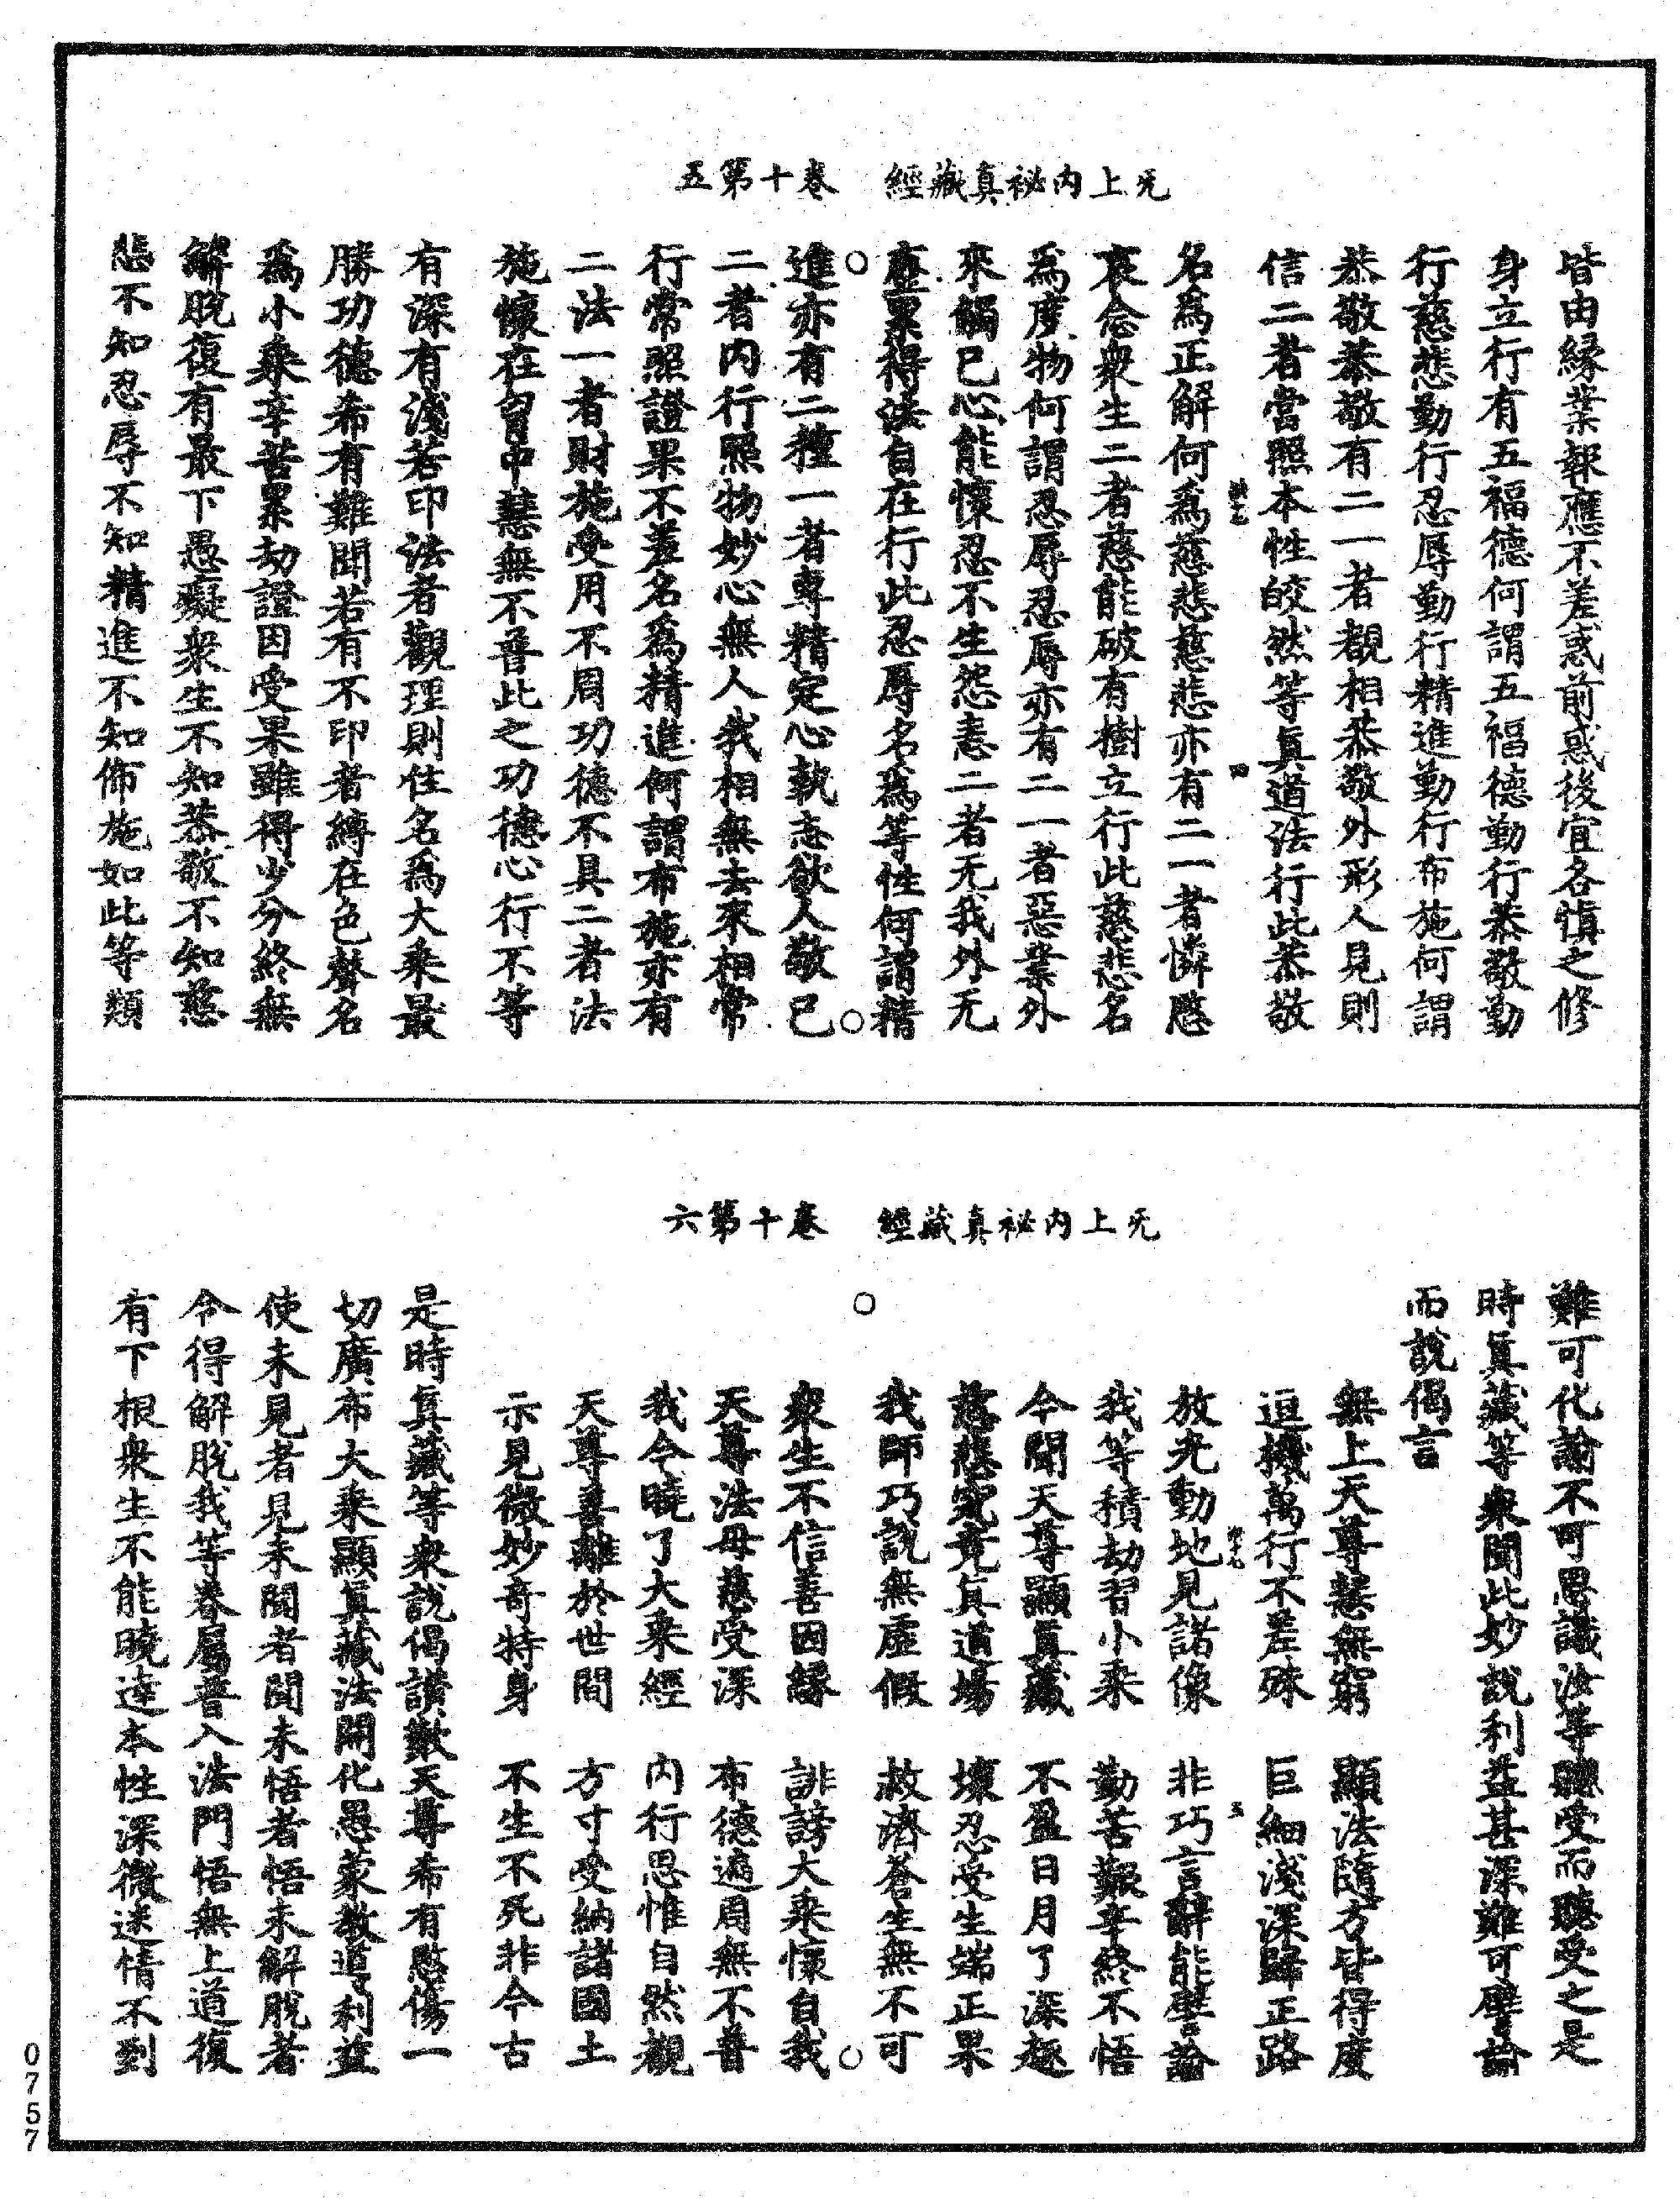 无上內祕真藏經　卷十第五
皆由緣業報應不差惑前惑後宜各慎之修
身立行行有五福德何謂五福德勤行恭敬勤
行慈悲勤行忍辱勤行精進勤行布施何謂
恭敬恭敬有二一者覩相恭敬外形人見則
信二者當照本性皎然等真道法行此恭敬
名為正解何為慈悲慈悲亦有二一者憐愍
哀念衆生二者慈能破有樹立行此慈悲名
為度物何謂忍辱忍辱亦有二一者惡業外
來觸已心能懷忍不生怨恚二者无我外无
塵累得法自在行此忍辱名為等性何謂精
進亦有二種一者專精定心執志欲人敬已
二者內行照物妙心無人我相無去來相常
行常照證果不差名為精進何謂布施亦有
二法一者財施受用不周功德不具二者法
施懷在胷中慧無不普此之功德心行不等
有深有淺若印法者觀理則住名為大乘最
勝功德希有難聞若有不印者縛在色聲名
為小乘辛苦累劫證因受果雖得少分終無
解脫復有最下愚癡衆生不知恭敬不知慈
悲不知忍辱不知精進不知佈施如此等類
无上內祕真藏經　卷十第六
難可化諭不可思議法等聽受而聽受之是
時真藏等衆聞此妙說利益甚深難可譬諭
而說偈言
無上天尊慧無窮　顯法隨方皆得度
逗機萬行不差殊　巨細淺深歸正路
放光動地見諸像　非巧言辭能譬諭
我等積劫習小乘　勤苦艱辛終不悟
今聞天尊顯真藏　不盈日月了深趣
慈悲究竟真道場　壞忍受生端正果
我師巧說無虛假　救濟蒼生無不可
衆生不信善因緣　誹謗大乘懷自我
天尊法母慈受深　布德遍周無不普
我今曉了大乘經　內行思惟自然觀
天尊善離於世間　方寸受納諸國土
示見微妙奇特身　不生不死非今古
是時真藏等衆說偈讚歎天尊希有愍傷一
切廣布大乘顯真藏法開化愚蒙教導利益
使未見者見未聞者聞未悟者悟未解脫者
令得解脫我等眷屬普入法門悟無上道復
有下根衆生不能曉達本性深微迷情不到
0757